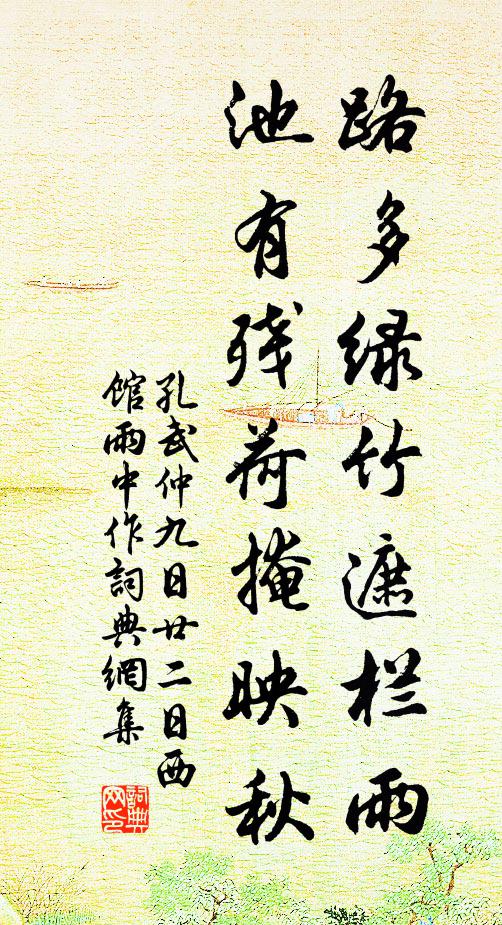 路多绿竹遮栏雨
池有残荷掩映秋
孔武仲九日廿二日西
馆雨中作詞典網集
詞典
网印